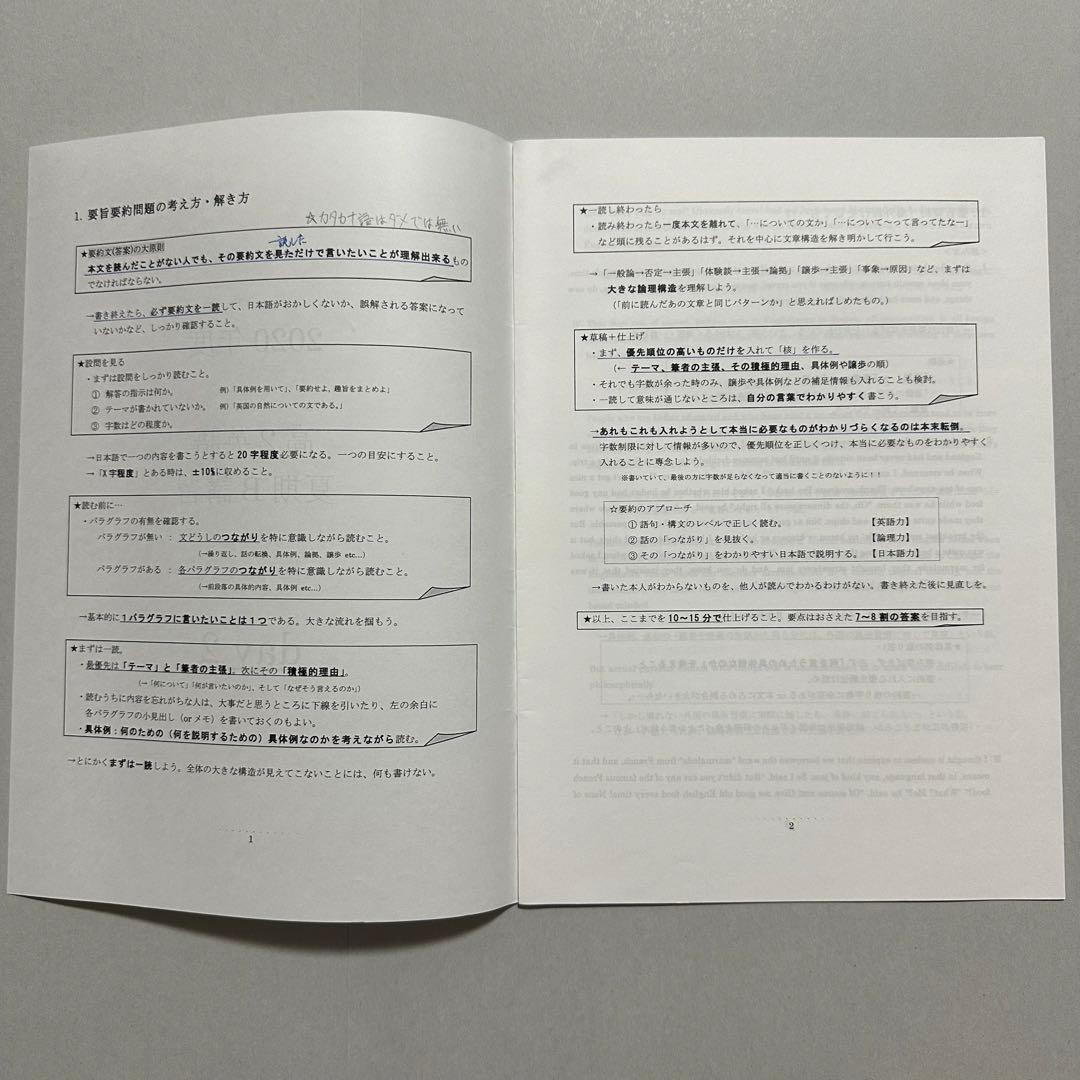 1. 要旨要約問題の考え方・解き方
☆カタカナ語はダメでは無い
★要約文(答案)の大原則
読んだ
本文を読んだことがない人でも、その要約文を見ただけで言いたいことが理解出来るもの
でなければならない。
→書き終えたら、必ず要約文を一読して、日本語がおかしくないか、誤解される答案になって
いないかなど、しっかり確認すること。
★設問を見る
・まずは設問をしっかり読むこと。
① 解答の指示は何か。 例)「具体例を用いて」、「要約せよ、趣旨をまとめよ」
② テーマが書かれていないか。 例)「英国の自然についての文である。」
③ 字数はどの程度か。
→日本語で一つの内容を書こうとすると 20 字程度必要になる。一つの目安にすること。
→「X 字程度」とある時は、±10%に収めること。
★読む前に…
・パラグラフの有無を確認する。
パラグラフが無い : 文どうしのつながりを特に意識しながら読むこと。
(→繰り返し、話の転換、具体例、論拠、譲歩 etc…)
パラグラフがある : 各パラグラフのつながりを特に意識しながら読むこと。
(→前段落の具体的内容、具体例 etc…)
→基本的に 1 パラグラフに言いたいことは 1 つである。大きな流れを掴もう。
★まずは一読。
・最優先は「テーマ」と「筆者の主張」。次にその「積極的理由」。
(→「何について」「何が言いたいのか」、そして「なぜそう言えるのか」)
・読むうちに内容を忘れがちな人は、大事だと思うところに下線を引いたり、左の余白に
各パラグラフの小見出し (or メモ) を書いておくのもよい。
・具体例：何のための（何を説明するための）具体例なのかを考えながら読む。
→とにかくまずは一読しよう。全体の大きな構造が見えてこないことには、何も書けない。
1
★一読し終わったら
・読み終わったら一度本文を離れて、「…についての文か」「…について～って言ってたなー」
など頭に残ることがあるはず。それを中心に文章構造を解き明かして行こう。
→「一般論→否定→主張」「体験談→主張→論拠」「譲歩→主張」「事象→原因」など、まずは
大きな論理構造を理解しよう。
(「前に読んだあの文章と同じパターンか」と思えればしめたもの。)
★草稿＋仕上げ
・まず、優先順位の高いものだけを入れて「核」を作る。
(← テーマ、筆者の主張、その積極的理由、具体例や譲歩の順)
・それでも字数が余った時のみ、譲歩や具体例などの補足情報も入れることも検討。
・一読して意味が通じないところは、自分の言葉でわかりやすく書こう。
→あれもこれも入れようとして本当に必要なものがわかりづらくなるのは本末転倒。
字数制限に対して情報が多いので、優先順位を正しくつけ、本当に必要なものをわかりやすく
入れることに専念しよう。
※書いていて、最後の方に字数が足らなくなって適当に書くことのないように！！
☆要約のアプローチ
① 語句・構文のレベルで正しく読む。 【英語力】
② 話の「つながり」を見抜く。 【論理力】
③ その「つながり」をわかりやすい日本語で説明する。 【日本語力】
→書いた本人がわからないものを、他人が読んでわかるわけがない。書き終えた後に見直しを。
★以上、ここまでを 10～15 分で仕上げること。要点はおさえた 7～8 割の答案を目指す。
2